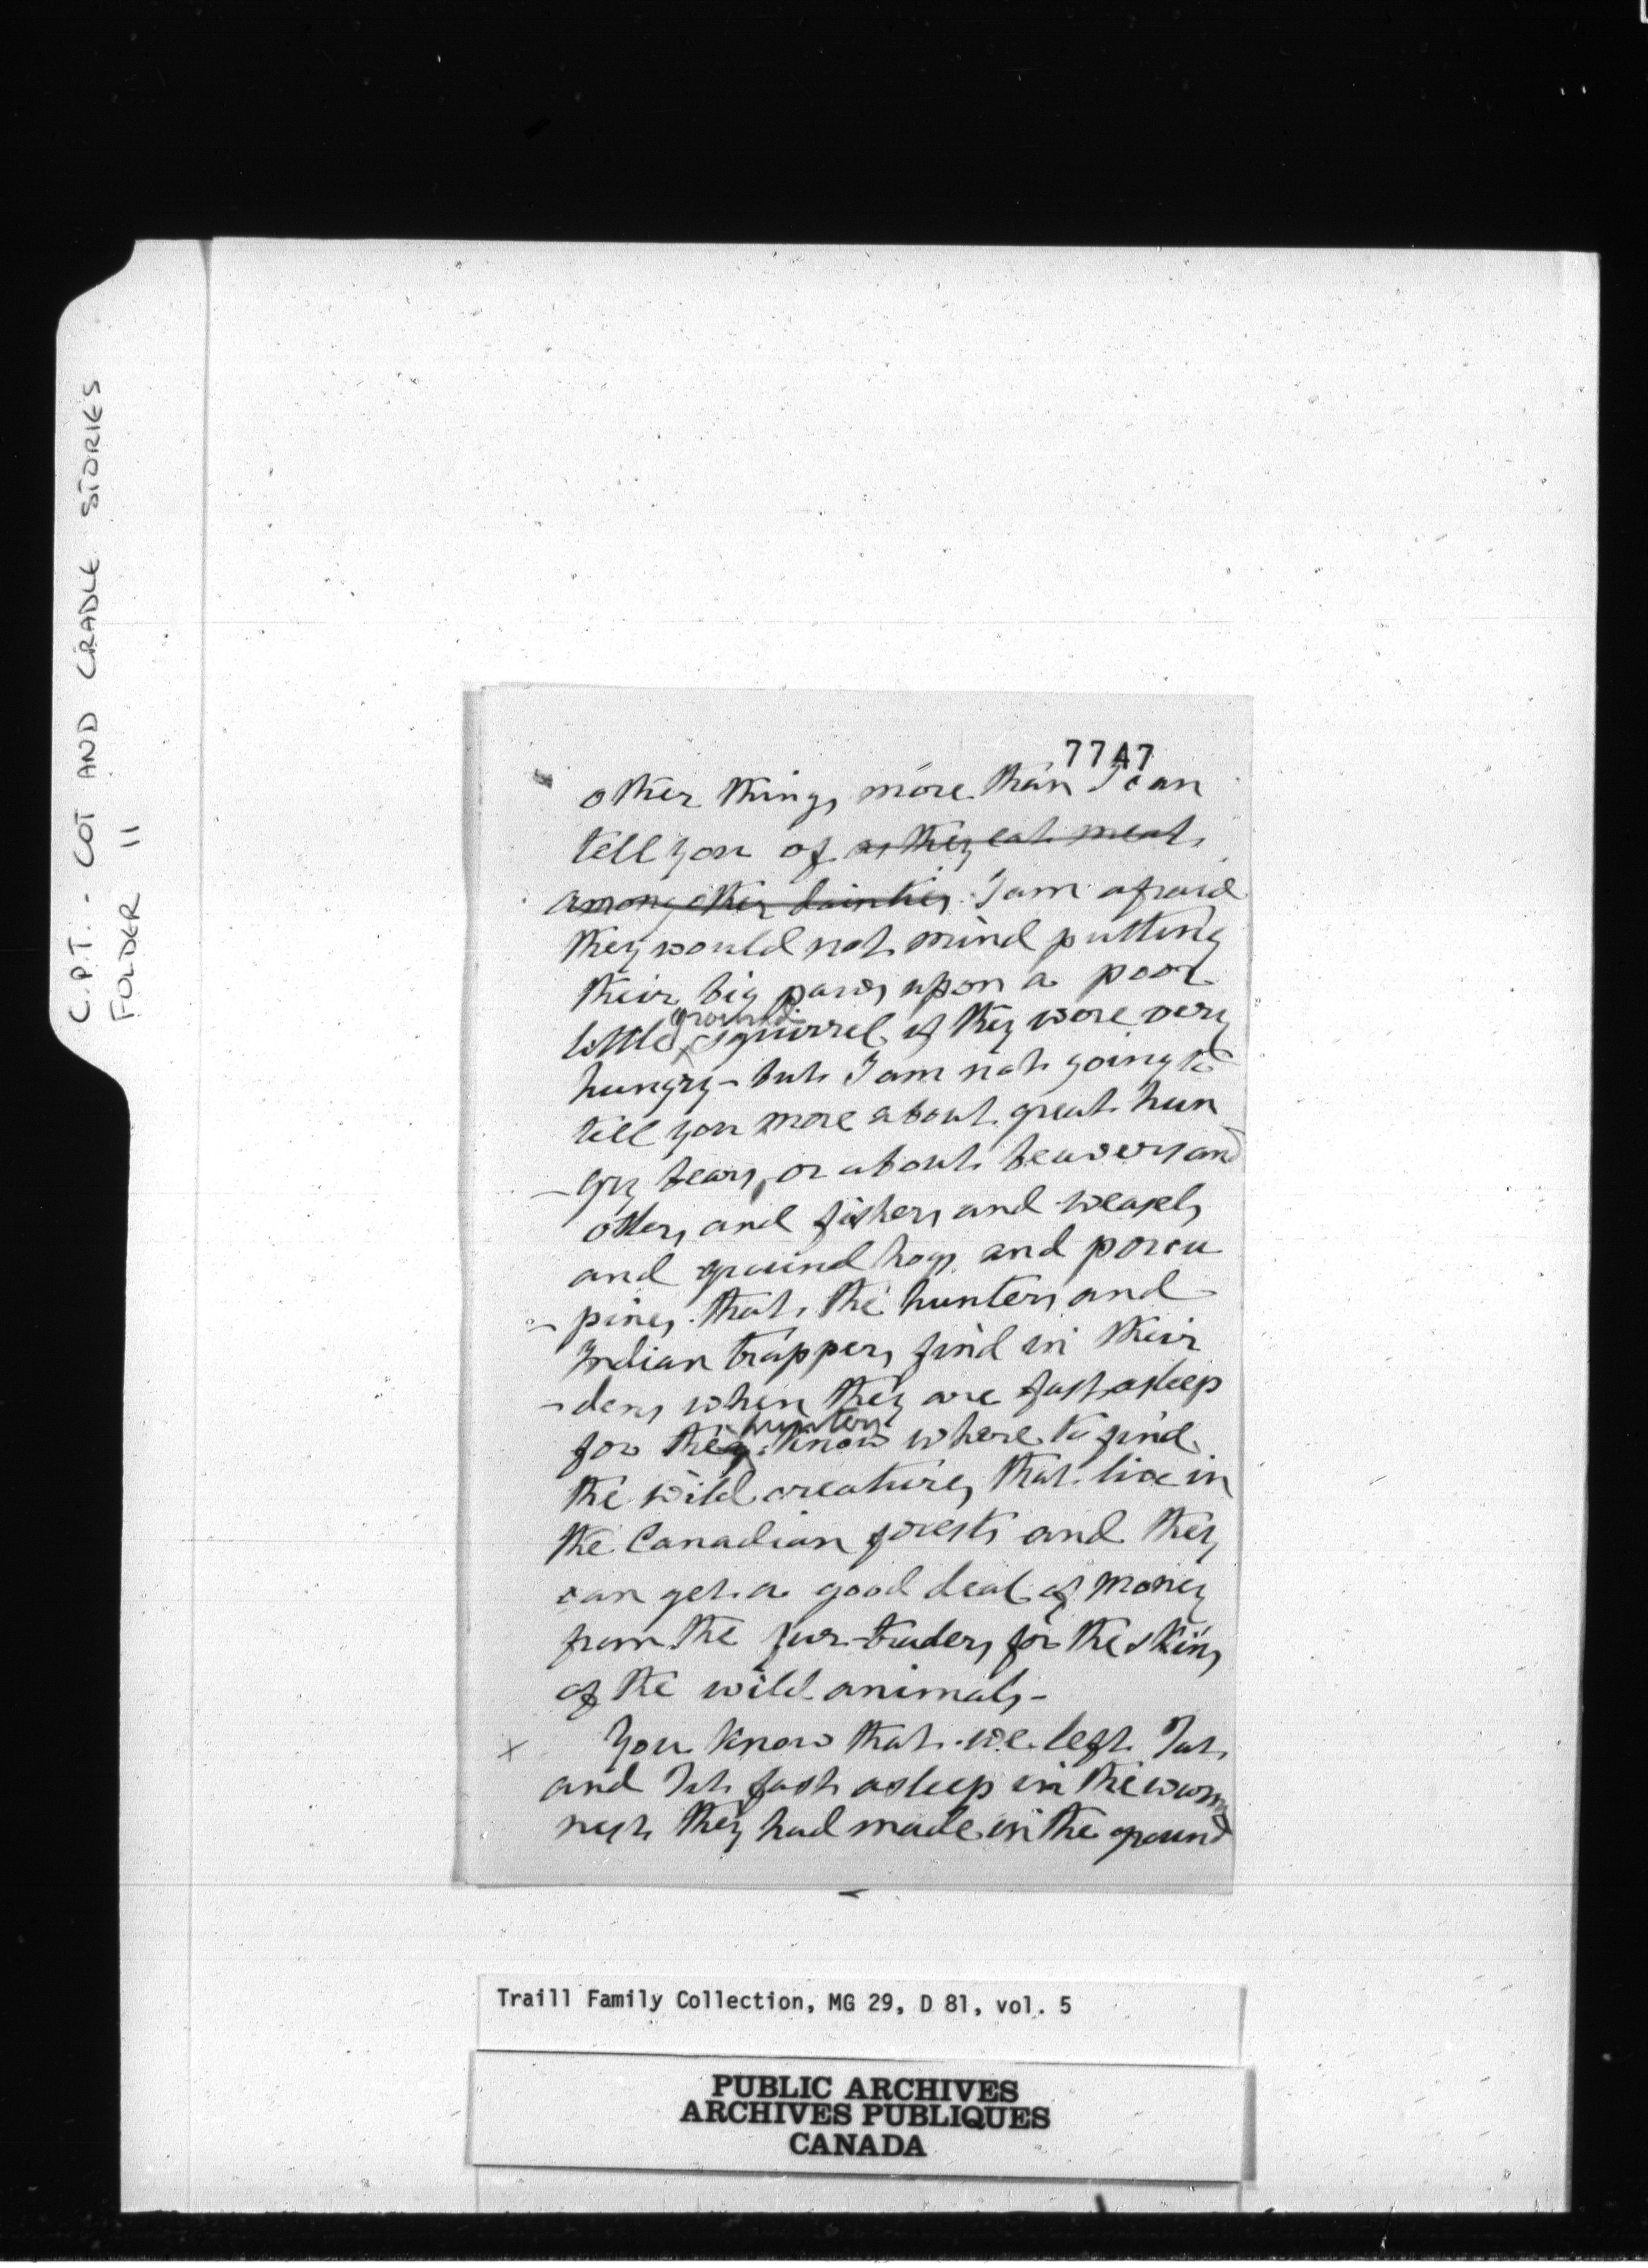 C.P.T. - COT AND CRADLE STORIES
FOLDER 11
7747
other things more than I can
tell you of as they eat meat
among other dainties I am afraid
they would not mind putting
their big paws upon a poor
ground
little squirrel if they were very
hungry - but I am not going to
tell you more about great hun
- gry bears, or about beavers and
otters and fishers and weasels
and ground hogs and porcu
- pines that the hunters and
Indian trappers find in their
- dens when they are fast asleep
hunters
for they know where to find
the wild creatures that live in
the Canadian forests and they
can get a good deal of money
from the fur-traders for the skins
of the wild animals -
x You know that we left Tat
and Tit fast asleep in the warm
nest they had made in the ground
Traill Family Collection, MG 29, D 81, vol. 5
PUBLIC ARCHIVES
ARCHIVES PUBLIQUES
CANADA